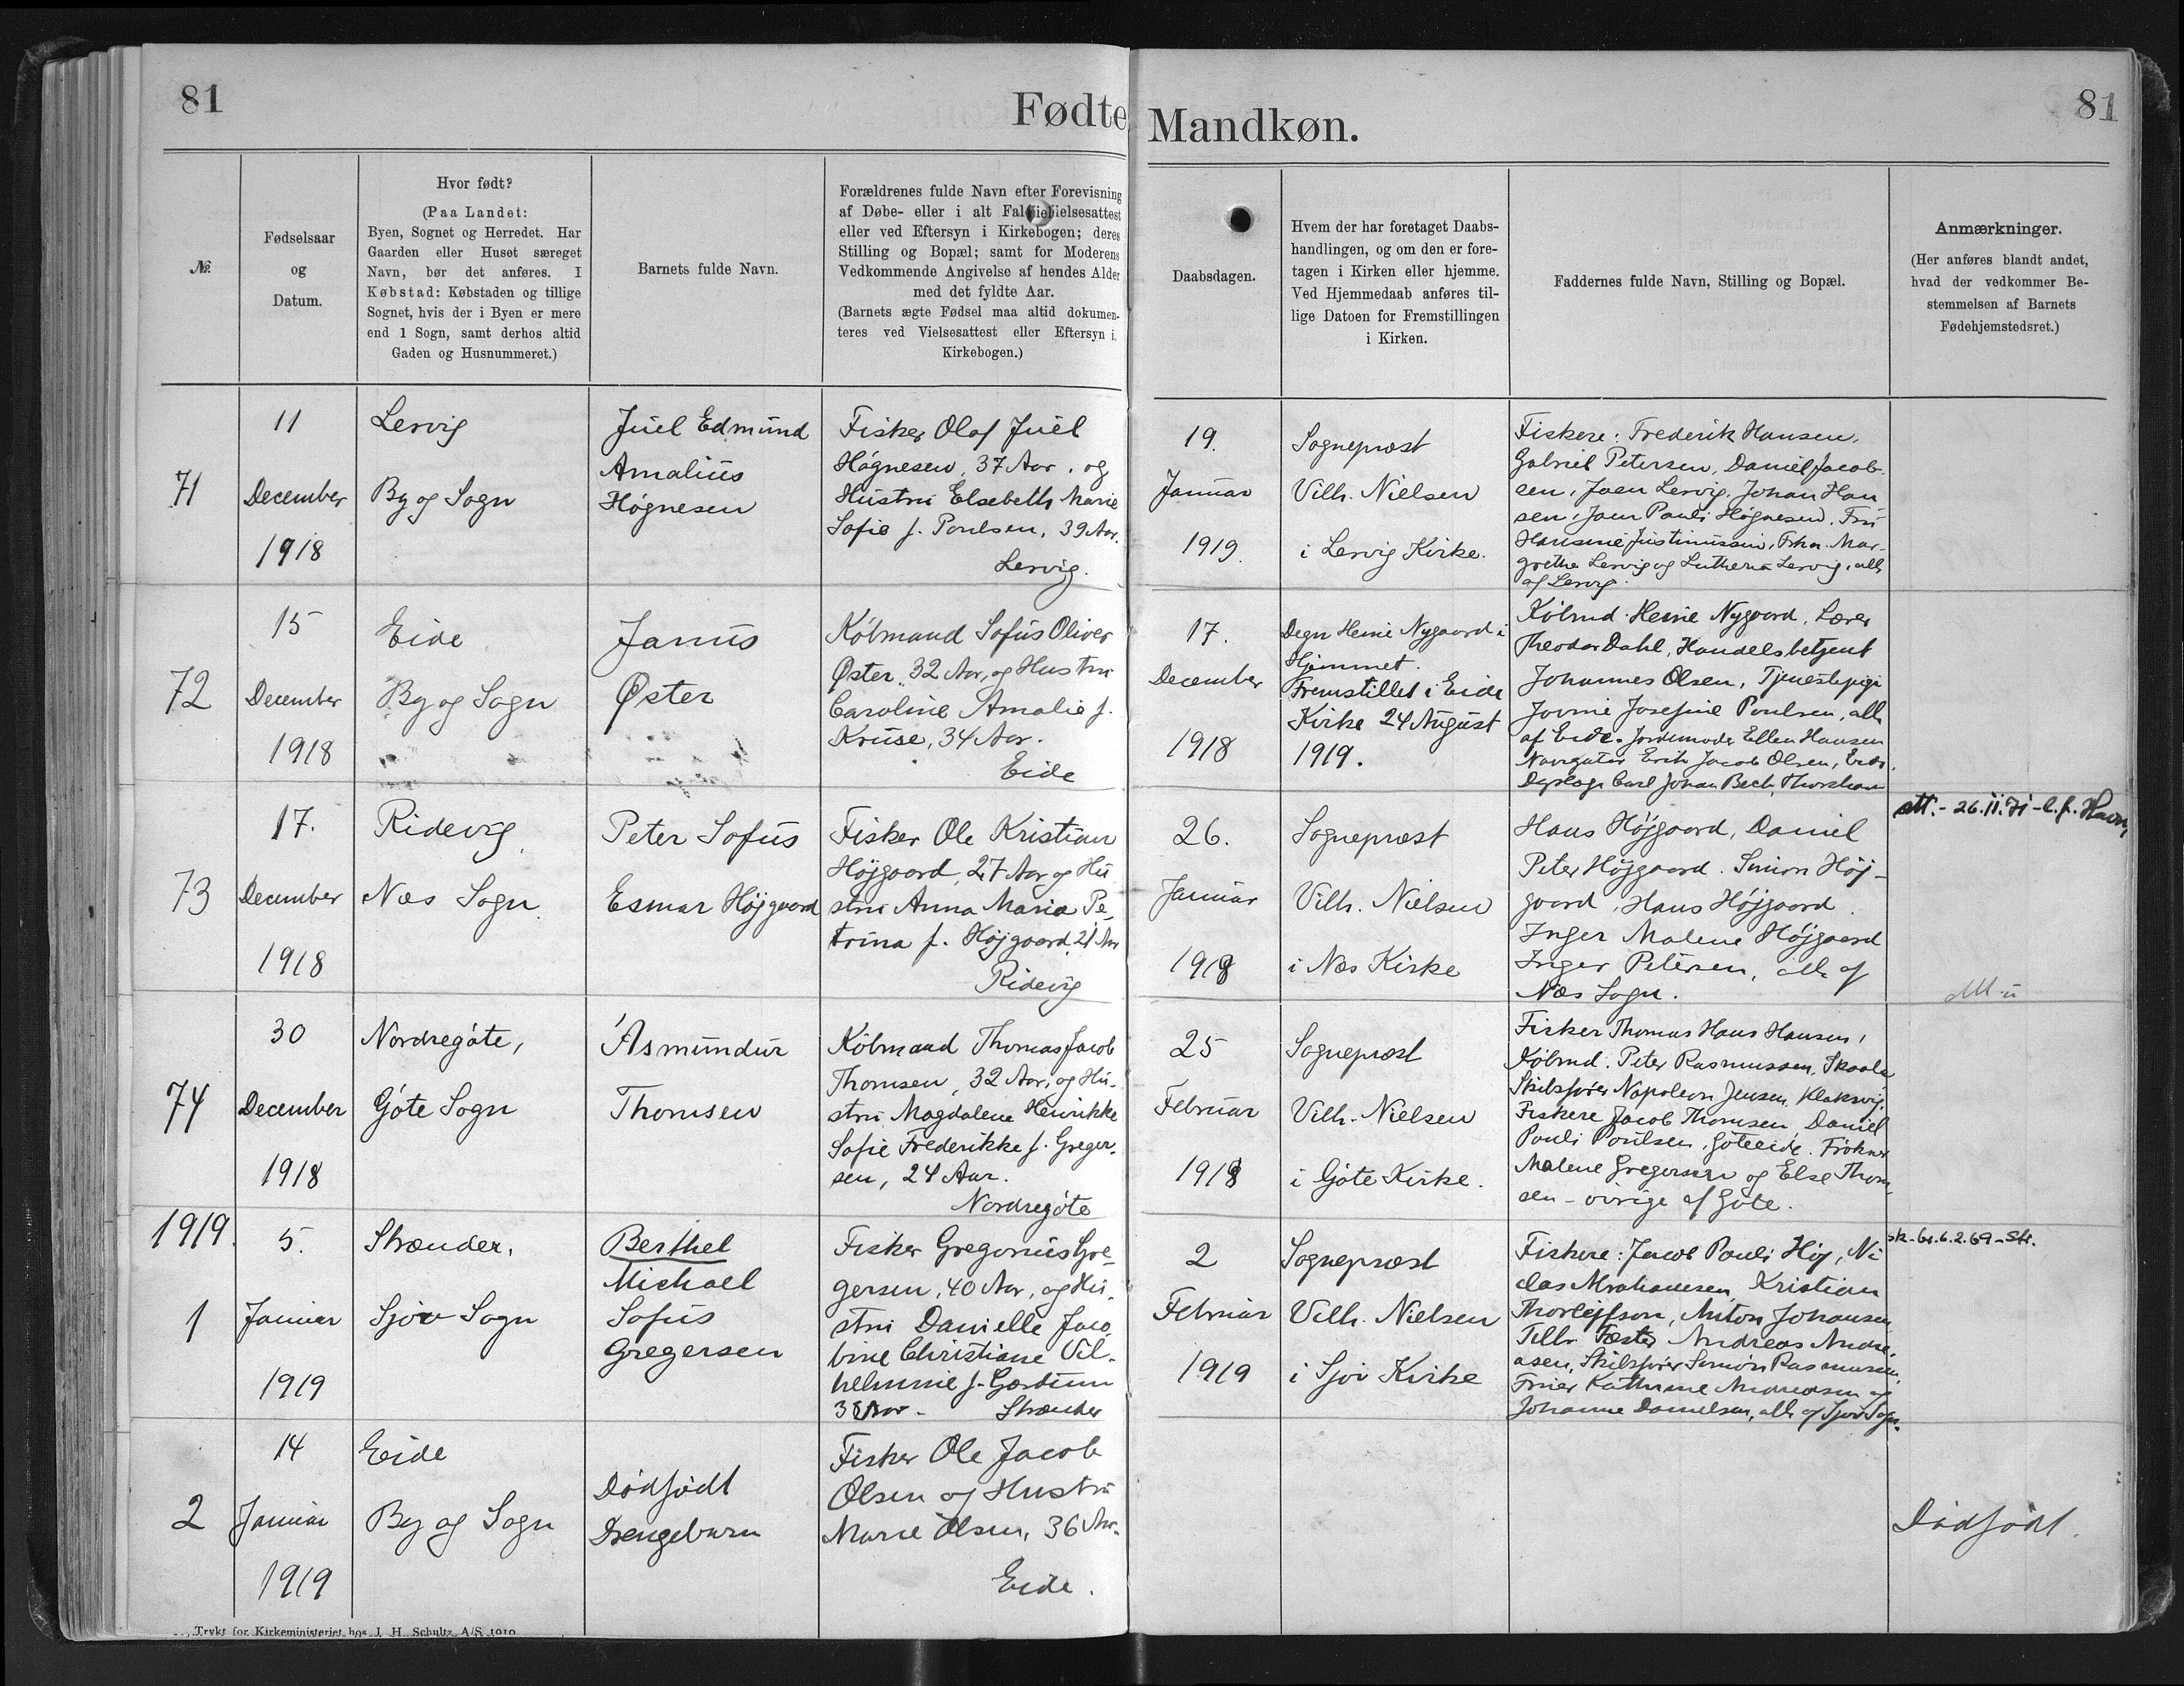 81
Fødte
Mandkøn.
81
№.
Fødselsaar
og
Datum.
Hvor født?
(Paa Landet:
Byen, Sognet og Herredet. Har
Gaarden eller Huset særeget
Navn, bør det anføres. I
Købstad: Købstaden og tillige
Sognet, hvis der i Byen er mere
end 1 Sogn, samt derhos altid
Gaden og Husnummeret.)
Barnets fulde Navn.
Forældrenes fulde Navn efter Forevisning
af Døbe- eller i alt Fald Vielsesattest
eller ved Eftersyn i Kirkebogen; deres
Stilling og Bopæl; samt for Moderens
Vedkommende Angivelse af hendes Alder
med det fyldte Aar.
(Barnets ægte Fødsel maa altid dokumen-
teres ved Vielsesattest eller Eftersyn i
Kirkebogen.)
Daabsdagen.
Hvem der har foretaget Daabs-
handlingen, og om den er fore-
tagen i Kirken eller hjemme.
Ved Hjemmedaab anføres til-
lige Datoen for Fremstillingen
i Kirken.
Faddernes fulde Navn, Stilling og Bopæl.
Anmærkninger.
(Her anføres blandt andet,
hvad der vedkommer Be-
stemmelsen af Barnets
Fødehjemstedsret.)
71
11
December
1918
Lervig
By og Sogn
Juel Edmund
Amalius
Høgnesen
Fisker Olaf Juel
Høgnesen, 37 Aar, og
Hustru Elsebeth Marie
Sofie f. Poulsen, 39 Aar.
Lervig.
19.
Januar
1919.
Sognepræst
Vilh. Nielsen
i Lervig Kirke.
Fiskere: Frederik Hansen,
Gabriel Petersen, Daniel Jacob-
sen, Joen Lervig, Johan Han
sen, Joen Pauli Høgnesen. Fru
Hansine Justinussen, Frkn. Mar-
grethe Lervig og Luthera Lervig, alle
af Lervig.
72
15
December
1918
Eide
By og Sogn
Janus
Øster
Købmand Sofus Oliver
Øster, 32 Aar, og Hustru
Caroline Amalie f.
Kruse, 34 Aar.
Eide
17.
December
1918
Degn Heine Nygaard i
Hjemmet.
Fremstillet i Eide
Kirke 24 August
1919.
Købmd. Heine Nygaard, Lærer
Theodor Dahl, Handelsbetjent
Johannes Olsen, Tjenestepige
Jovine Josefine Poulsen, alle
af Eide. Jordemoder Ellen Hansen
Navigatør Erik Jacob Olsen, Eide.
Dyrlæge Carl Johan Bech, Thorshavn
73
17.
December
1918
Ridevig,
Næs Sogn
Peter Sofus
Esmar Højgaard
Fisker Ole Kristian
Højgaard, 27 Aar og Hu
stru Anna Maria Pe-
trina f. Højgaard, 21 Aar
Ridevig
26.
Januar
1919
Sognepræst
Vilh. Nielsen
i Næs Kirke
Hans Højgaard, Daniel
Peter Højgaard. Simon Høj-
gaard, Hans Højgaard.
Inger Malene Højgaard
Inger Petersen, alle af
Næs Sogn.
att.- 26.11.71 - l.f. Havn,
74
30
December
1918
Nordregøte,
Gøte Sogn
Ásmundur
Thomsen
Købmand Thomas Jacob
Thomsen, 32 Aar, og Hu-
stru Magdalene Henrikke
Sofie Frederikke f. Greger-
sen, 24 Aar.
Nordregøte
25
Februar
1919
Sognepræst
Vilh. Nielsen
i Gøte Kirke.
Fisker Thomas Hans Hansen,
Købmd. Peter Rasmussen, Skaale
Skibsfører Napoleon Jensen, Klaksvig,
Fiskere Jacob Thomsen, Daniel
Pauli Poulsen, Gøteeide. Frøkner
Malene Gregersen og Else Thom-
sen - øvrige af Gøte.
1919.
1
5.
Januar
1919
Strænder,
Sjov Sogn
Berthel
Michael
Sofus
Gregersen
Fisker Gregorius Gre-
gersen, 40 Aar, og Hu-
stru Danielle Jaco
bine Christiane Vil-
helmine f. Gærdum
38 Aar - Strænder
2
Februar
1919
Sognepræst
Vilh. Nielsen
i Sjov Kirke
Fiskere: Jacob Pauli Høj, Ni
clas Abrahamsen, Kristian
Thorleifsson, Anton Johansen
Fæster Andreas Andre-
asen, Skibsfører Simon Rasmussen,
Fruer Kathrine Andreasen og
Johanne Danielsen, alle af Sjov Sogn.
sk-br. 6.2.69 - Str.
2
14
Januar
1919
Eide
By og Sogn
Dødfødt
Drengebarn
Fisker Ole Jacob
Olsen og Hustru
Marie Olsen, 36 Aar.
Eide.
Dødfødt.
Trykt for Kirkeministeriet hos J. H. Schultz A/S 1910